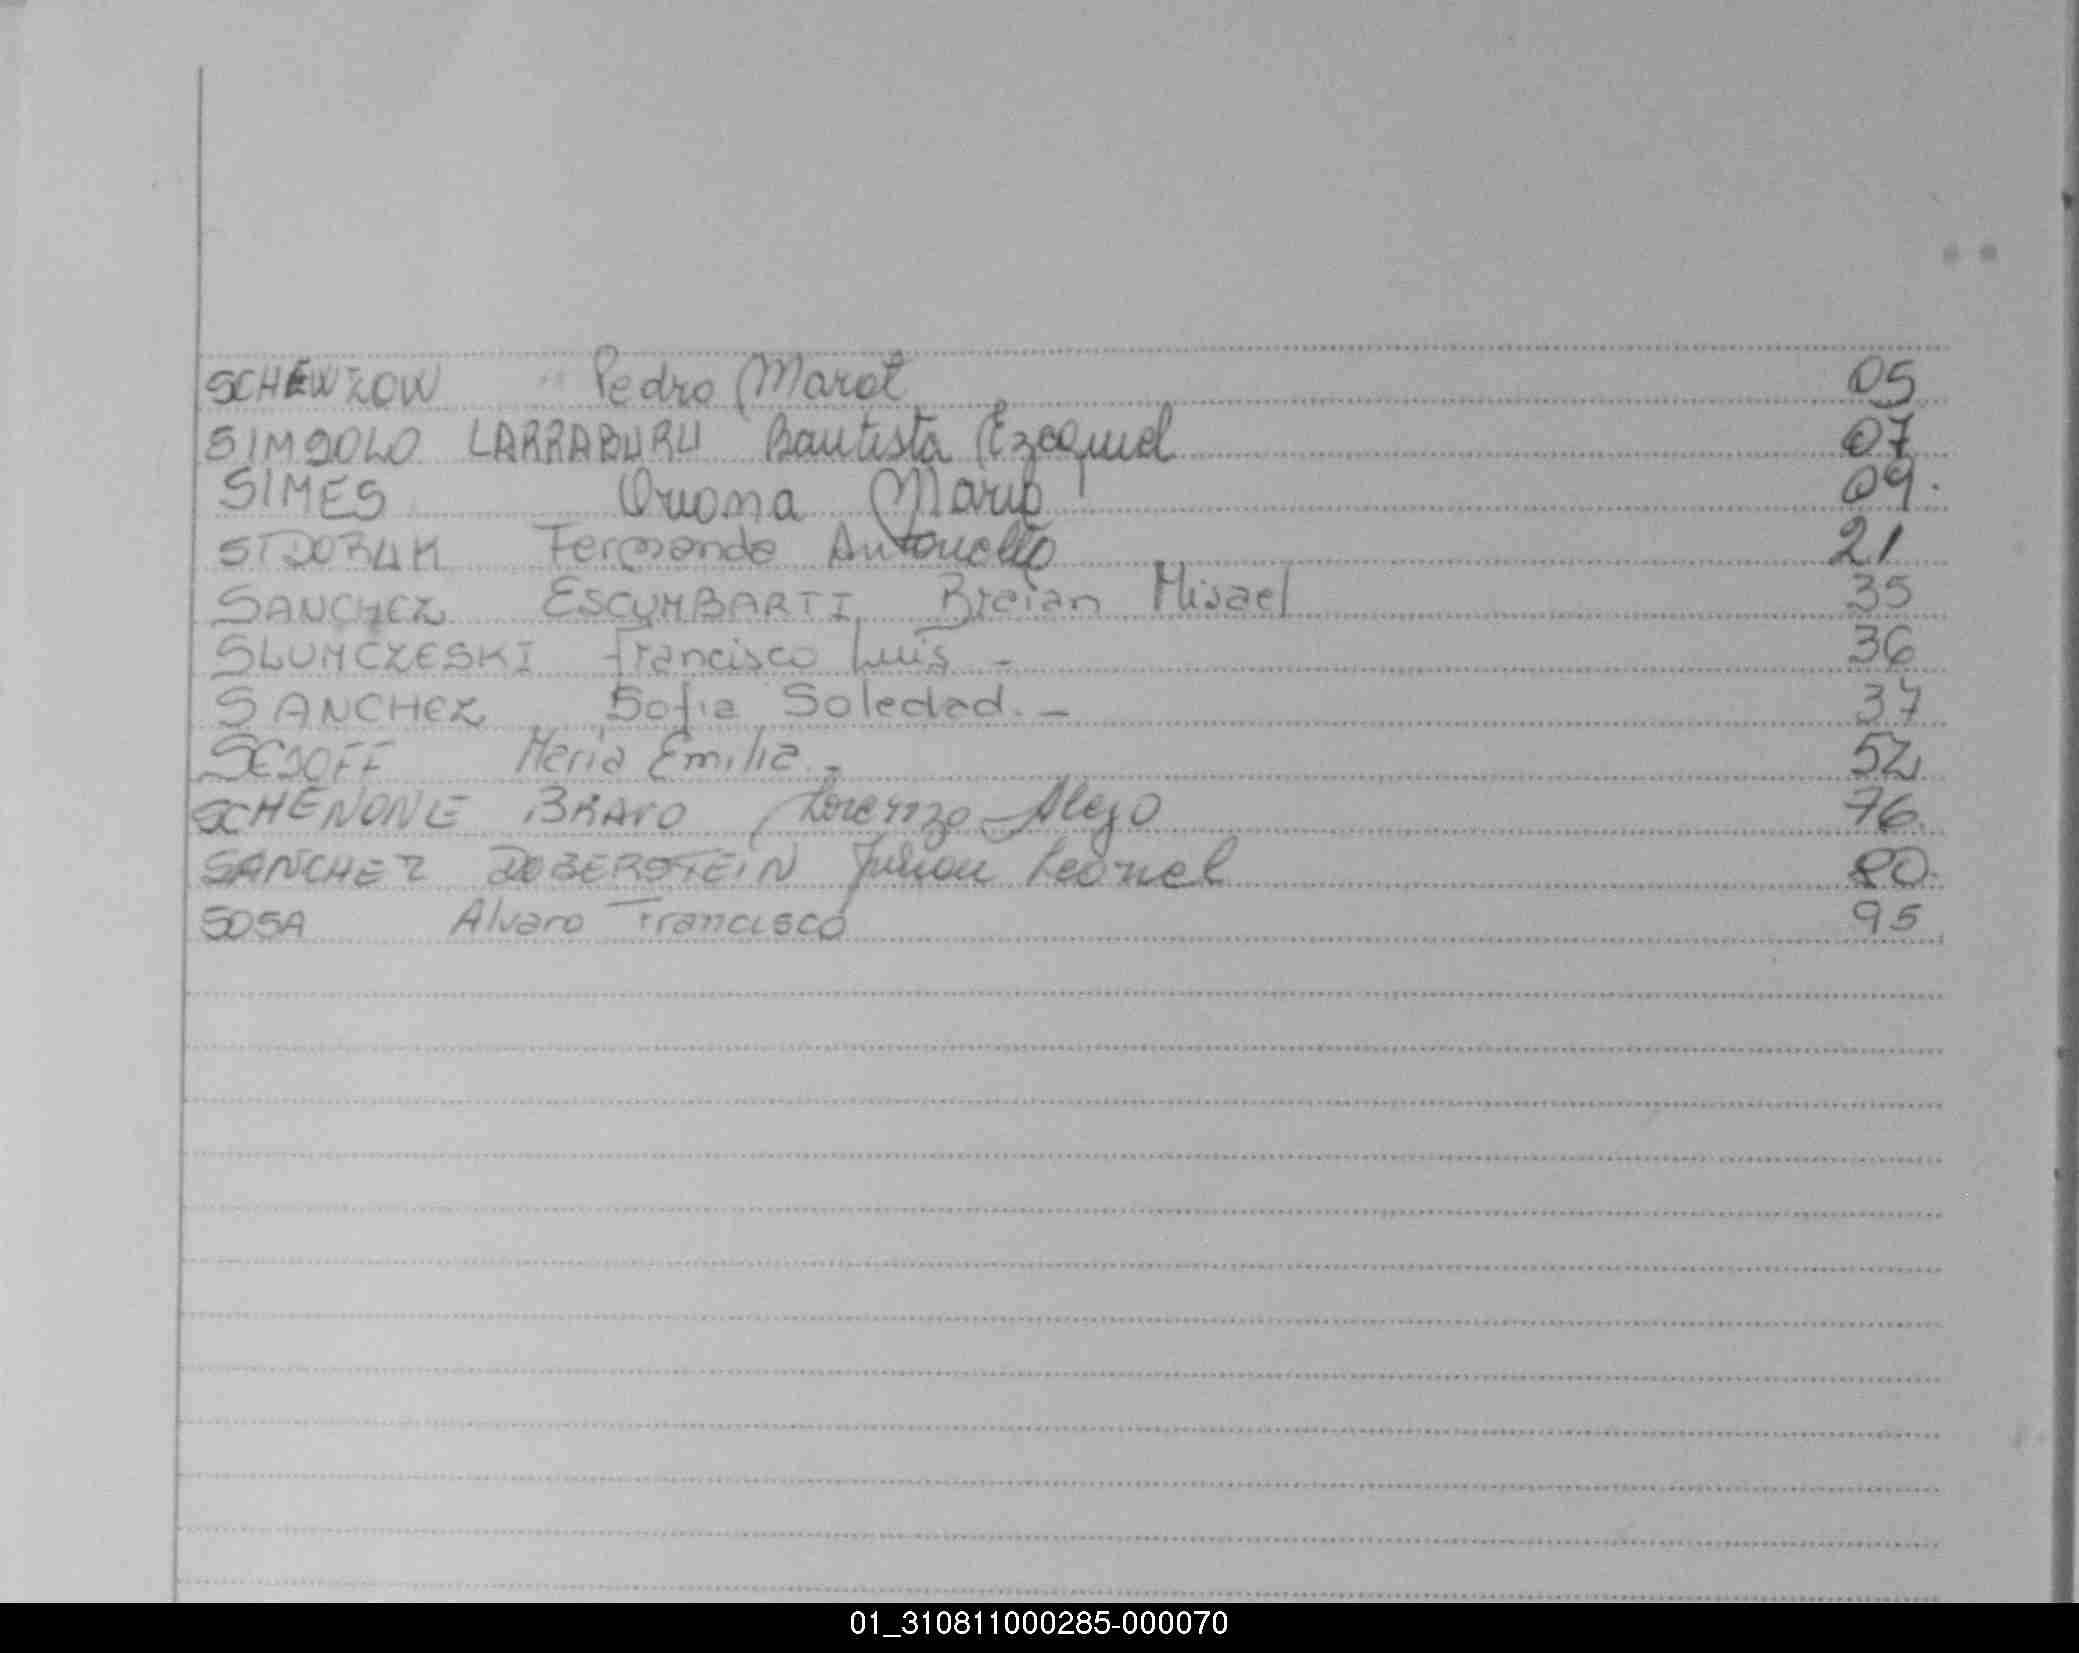 SCHEWZOW Pedro Marot 05
LARRABURU Bautista Ezequiel 07
SIMES Oriana 09.
Antonella 21
SANCHEZ ESCUMBARTI Breian Misael 35
SLUMCZESKI Francisco Luis - 36
SANCHEZ Sofia Soledad. - 37
Maria Emilia. - 52
SCHENONE BRAVO Lorenzo Alejo 76.
SANCHEZ DOBERSTEIN Julian Leonel 80.
SOSA Alvaro Francisco 95
01_310811000285-000070